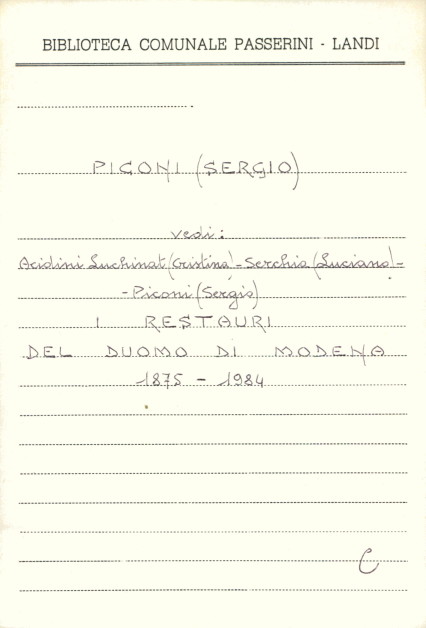 BIBLIOTECA COMUNALE PASSERINI - LANDI
PICONI (SERGIO)
vedi:
Acidini Luchinat (Cristina) - Serchia (Luciano) -
- Piconi (Sergio)
I RESTAURI
DEL DUOMO DI MODENA
1875 - 1984
C